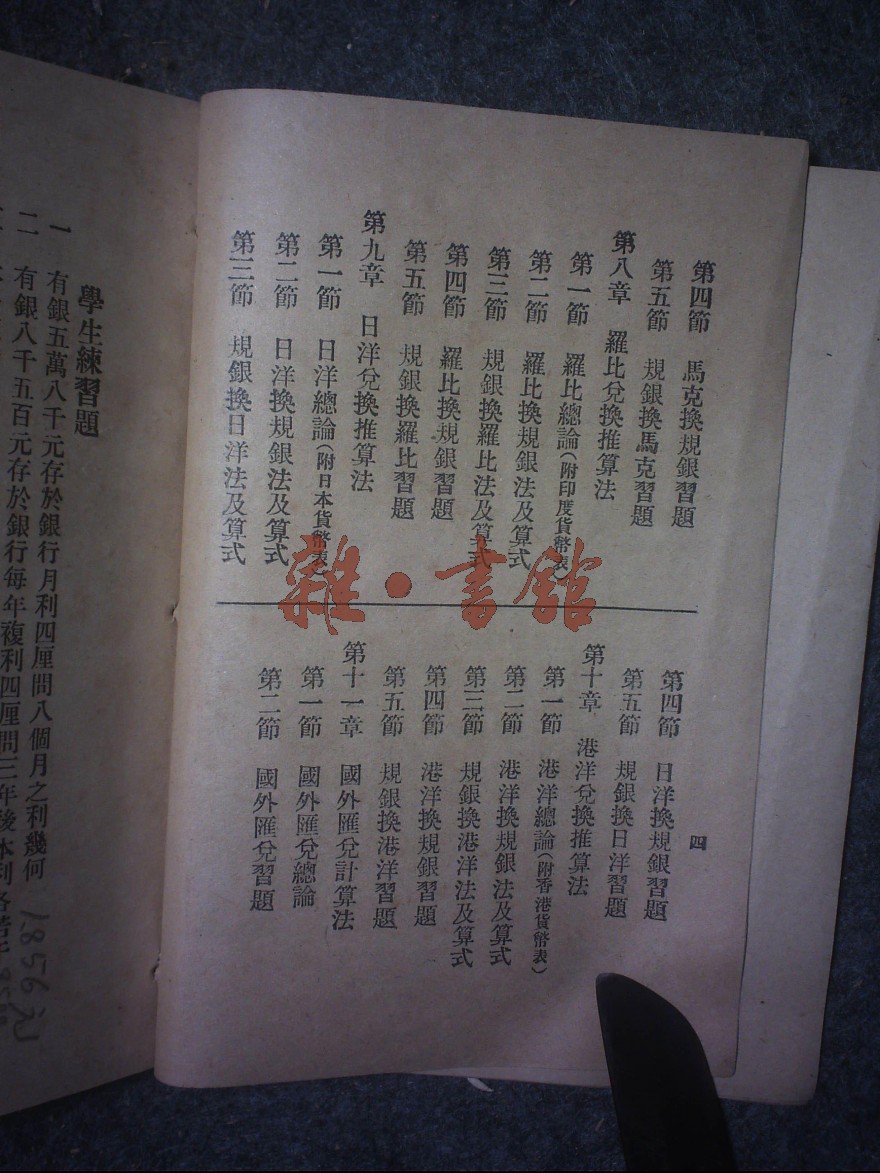 第四節 馬克換規銀習題
第五節 規銀換馬克習題
第八章 羅比兌換推算法
第一節 羅比總論(附印度貨幣表)
第二節 羅比換規銀法及算式
第三節 規銀換羅比法及算式
第四節 羅比換規銀習題
第五節 規銀換羅比習題
第九章 日洋兌換推算法
第一節 日洋總論(附日本貨幣表)
第二節 日洋換規銀法及算式
第三節 規銀換日洋法及算式
第四節 日洋換規銀習題
第五節 規銀換日洋習題
第十章 港洋兌換推算法
第一節 港洋總論(附香港貨幣表)
第二節 港洋換規銀法及算式
第三節 規銀換港洋法及算式
第四節 港洋換規銀習題
第五節 規銀換港洋習題
第十一章 國外匯兌計算法
第一節 國外匯兌總論
第二節 國外匯兌習題
四
學生練習題
一 有銀五萬八千元存於銀行月利四厘問八個月之利幾何 1856元
二 有銀八千五百元存於銀行每年複利四厘問三年後本利各若干
雜·書館